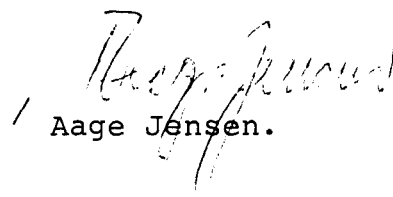 Aage Jensen
/ Aage Jensen.